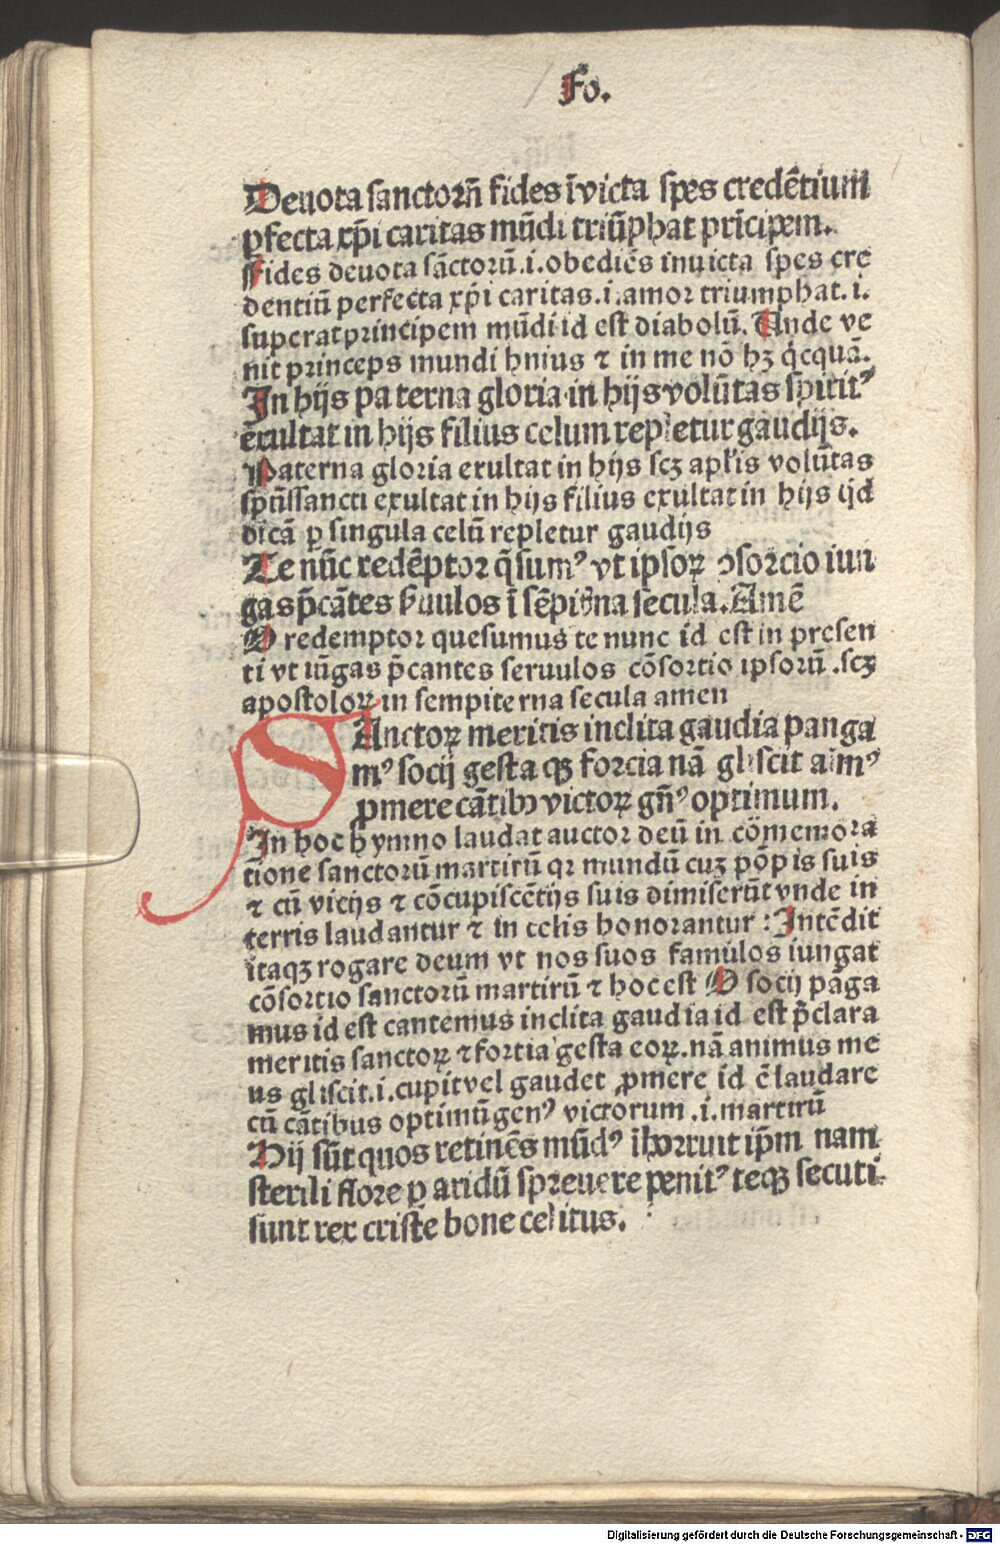 Fo.
Deuota sanctorū fides īvicta spes credētium
ꝑfecta xp̄i caritas mūdi triūphat prīcipem.
Fides deuota sāctorū.i.obediēs inuicta spes cre
dentiū perfecta xp̄i caritas.i.amor triumphat.i.
superat principem mūdi id est diabolū. Unde ve
nit princeps mundi hnius ⁊ in me nō hꝫ q̇cquā.
In hijs paterna gloria in hijs volūtas spirit⁹
exultat in hijs filius celum repletur gaudijs.
Paterna gloria exultat in hijs scꝫ apl̄is volūtas
sp̄ūssancti exultat in hijs filius exultat in hijs
dicā ꝑ singula celū repletur gaudijs
Te nūc redēptor q̄sum⁹ vt ipsoꝝ ɔsorcio iun
gas p̄cātes uulos ī sēpiṫna secula.Amē
O redemptor quesumus te nunc id est in presen
ti vt iūgas p̄cantes seruulos cōsortio ipsorū .scꝫ
apostoloꝝ in sempiterna secula amen
SAnctoꝝ meritis inclita gaudia panga
m⁹ socij gesta qꝫ forcia nā gliscit aīm⁹
ꝓmere cātibꝫ victoꝝ gn̄⁹ optimum.
In hoc hymno laudat auctor deū in cōmemora
tione sanctorū martirū qꝛ mundū cuꝫ pōpis suis
⁊ cū vicijs ⁊ cōcupiscētijs suis dimiserūt vnde in
terris laudantur ⁊ in celis honorantur : Intēdit
itaqꝫ rogare deum vt nos suos famulos iungat
cōsortio sanctorū martirū ⁊ hoc est O socij pāga
mus id est cantemus inclita gaudia id est p̄clara
meritis sanctoꝝ ⁊ fortia gesta eoꝝ.nā animus me
us gliscit.i.cupit vel gaudet ꝓmere id ē laudare
cū cātibus optimū gen⁹ victorum .i.martirū
Hij sūt quos retinēs mūd⁹ īhorruit ip̄m nam
sterili flore ꝑ aridū spreuere penit⁹ teqꝫ secuti
sunt rex criste bone celitus.
Digitalisierung gefördert durch die Deutsche Forschungsgemeinschaft - DFG